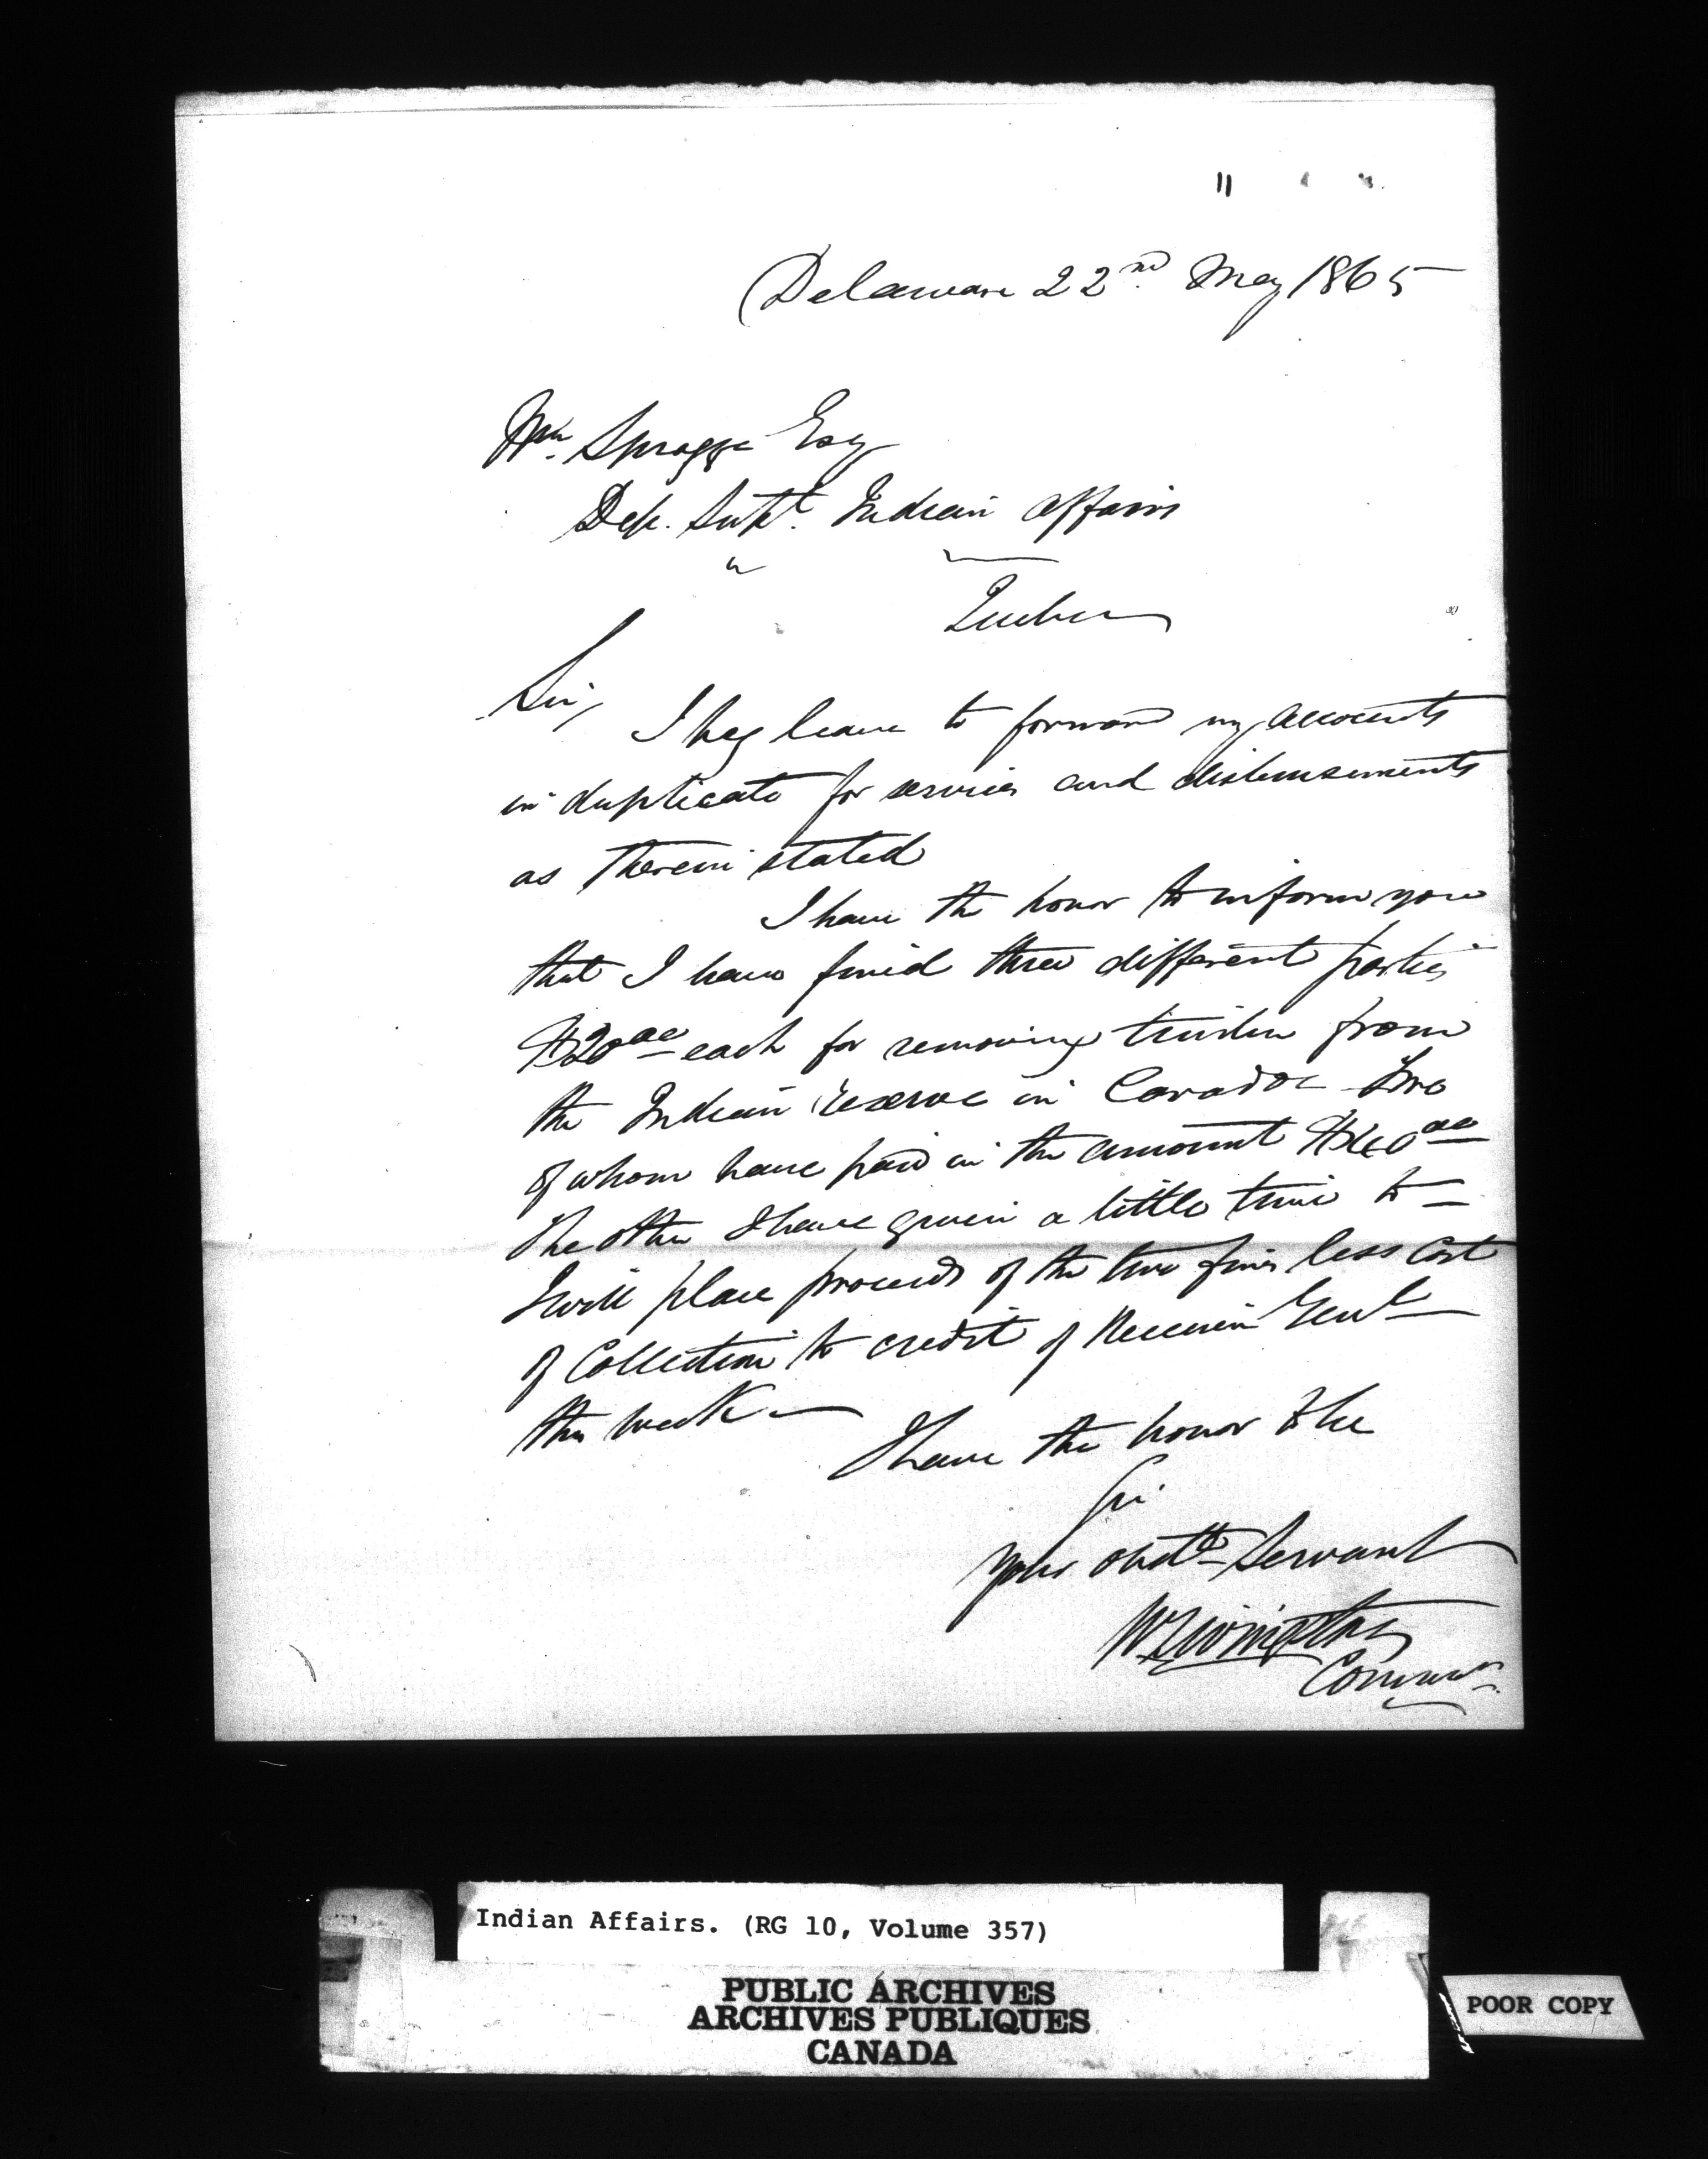 Delaware 22nd May 1865
Wm. Spragge Esq
Dep. Supt. Indian Affairs
"
Quebec
Sir,
I beg leave to forward my accounts
in duplicate for services and disbursements
as therein stated
I have the honor to inform you
that I have fined three different parties
$20 00 each for removing timber from
the Indian reserve in Caradoc Two
of whom have paid in the amount $40 00
The other I have given a little time to –
I will place proceeds of the two fines less Cost
of Collection to credit of Receiver Genl
this week –
I have the honor to be
Sir
Your obdt Servant
W Livingston
Commr.
Indian Affairs. (RG 10, Volume 357)
PUBLIC ARCHIVES
ARCHIVES PUBLIQUES
CANADA
POOR COPY